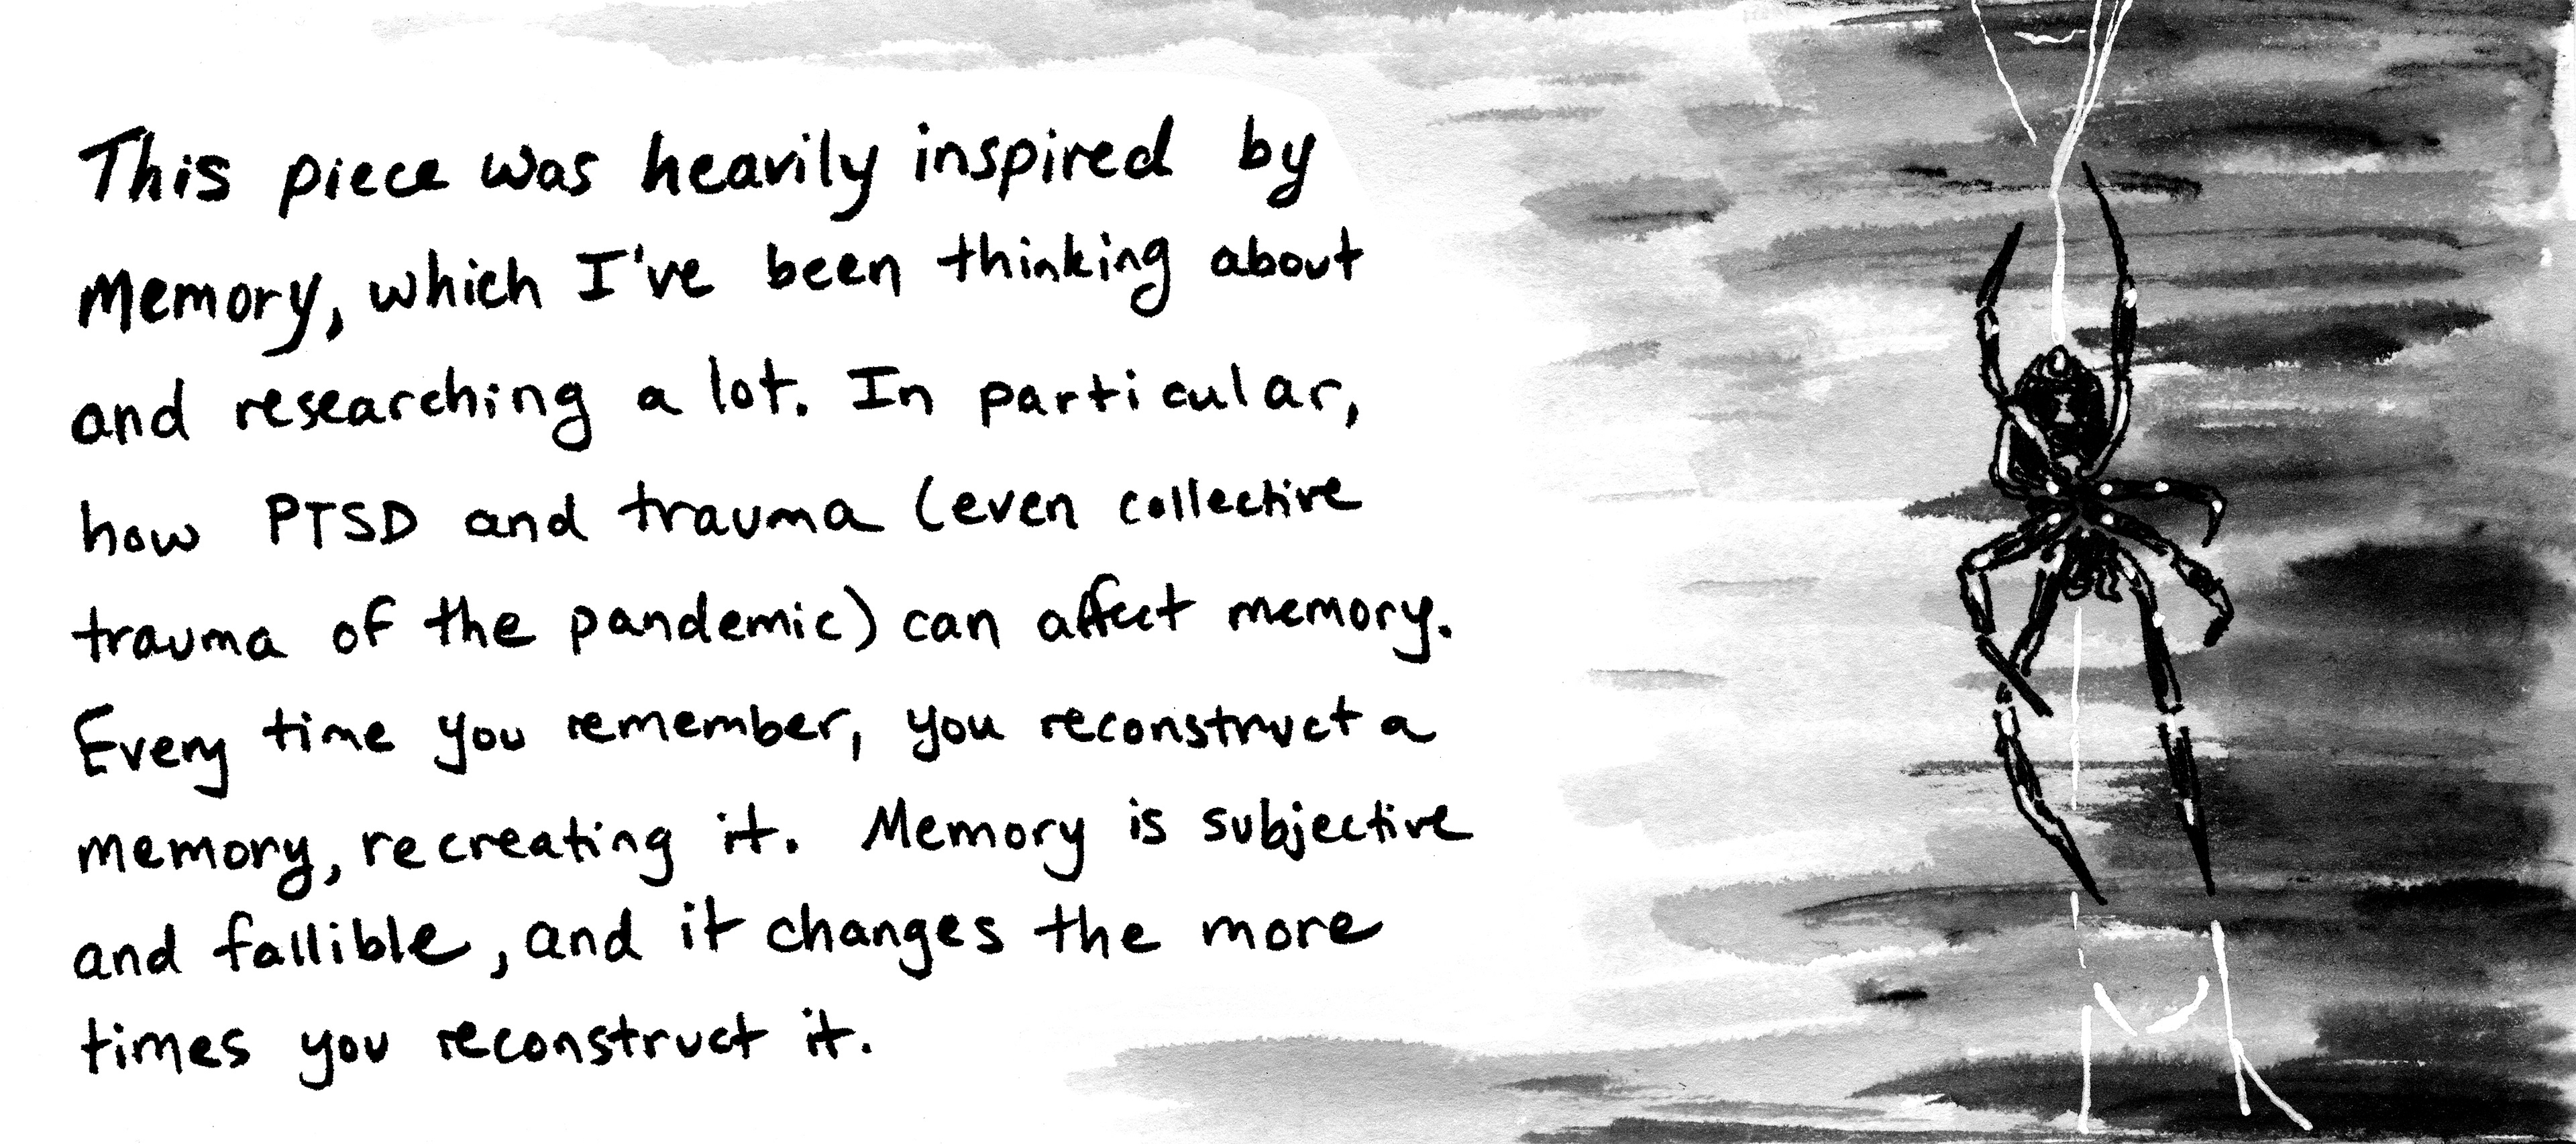 This piece was heavily inspired by
Memory, which I've been thinking about
and researching a lot. In particular,
how PTSD and trauma (even collective
trauma of the pandemic) can affect memory.
Every time you remember, you reconstruct a
memory, recreating it. Memory is subjective
and fallible, and it changes the more
times you reconstruct it.